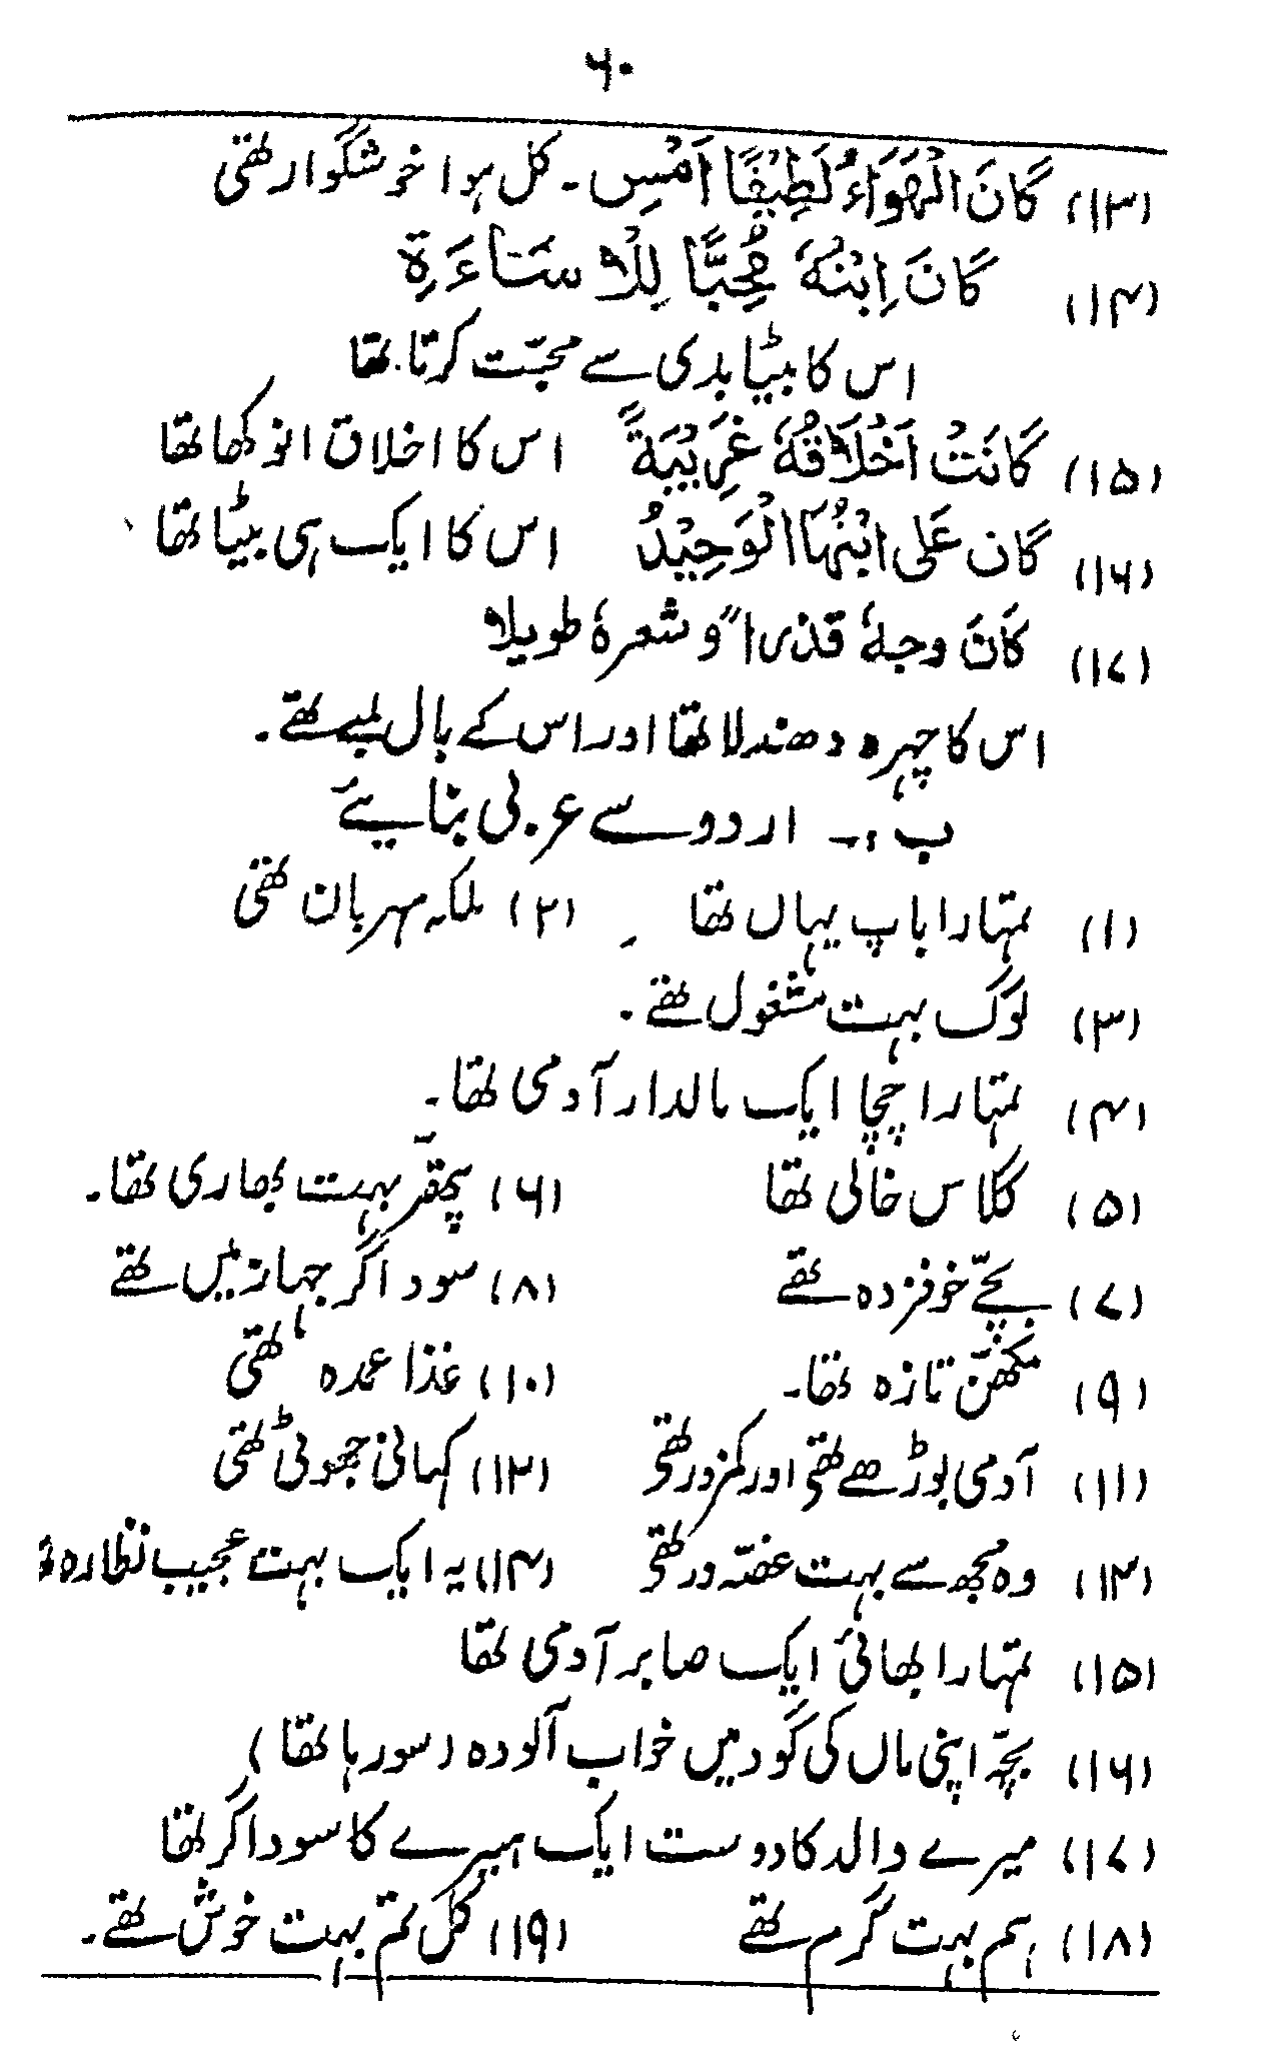 ۶۰
(۱۳) کَانَ الْهَوَاءُ لَطِیْفًا اَمْسِ ۔ کل ہوا خوشگوار تھی
(۱۴) کَانَ اِبْنُهٗ مُحِبًّا لِلْاِسَاءَةِ
اس کا بیٹا بدی سے محبّت کرتا تھا
(۱۵) کَانَتْ اَخْلَاقُهٗ غَرِیْبَةً اس کا اخلاق انوکھا تھا
(۱۶) کان عَلی ابْنُهَا الْوَحِیْدُ اس کا ایک ہی بیٹا تھا
(۱۷) کَانَ وجهہٗ قذراً و شعرہٗ طویلا
اس کا چہرہ دھندلا تھا اور اس کے بال لمبے تھے ۔
ب :۔ اردو سے عربی بنائیے
(۱) تمہارا باپ یہاں تھا (۲) ملکہ مہربان تھی
(۳) لوگ بہت مشغول تھے ۔
(۴) تمہارا چچا ایک مالدار آدمی تھا ۔
(۵) کلاس خالی تھا (۶) پتھر بہت بھاری تھا ۔
(۷) بچّے خوفزدہ تھے (۸) سوداگر جہاز میں تھے
(۹) مکھّن تازہ تھا ۔ (۱۰) غذا عمدہ تھی
(۱۱) آدمی بوڑھے تھے اور کمزور تھے (۱۲) کہانی جھوٹی تھی
(۱۳) وہ مجھ سے بہت غصّہ ور تھے (۱۴) یہ ایک بہت عجیب نظارہ
(۱۵) تمہارا بھائی ایک صابر آدمی تھا
(۱۶) بچّہ اپنی ماں کی گود میں خواب آلودہ (سو رہا تھا)
(۱۷) میرے والد کا دوست ایک ہیرے کا سوداگر تھا
(۱۸) ہم بہت گرم تھے (۱۹) کل تم بہت خوش تھے ۔